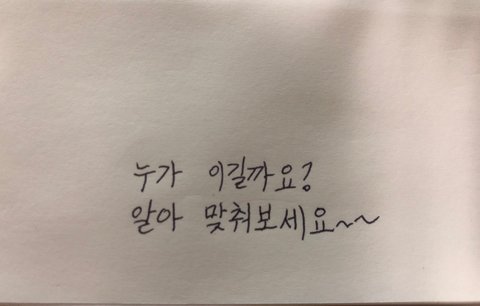 누가 이길까요?
알아 맞춰보세요~~